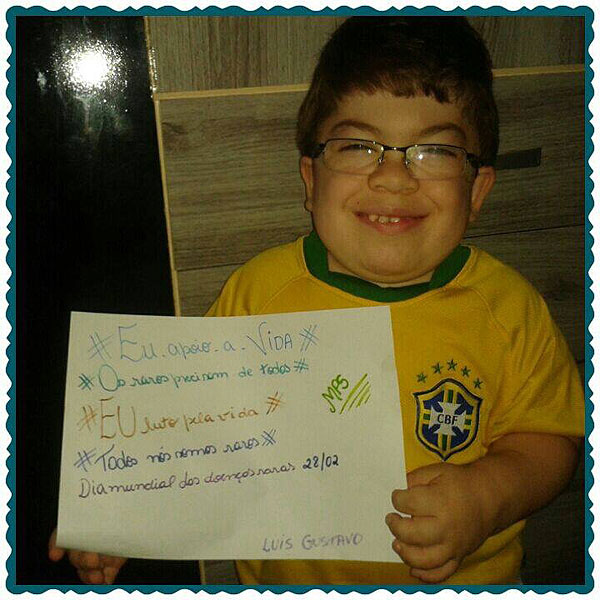 #Eu.apoio.a.VIDA#
#Os raros precisam de todos#
#EU luto pela vida#
MPS
#Todos nós somos raros#
Dia mundial das doenças raras 28/02
LUIS GUSTAVO
CBF